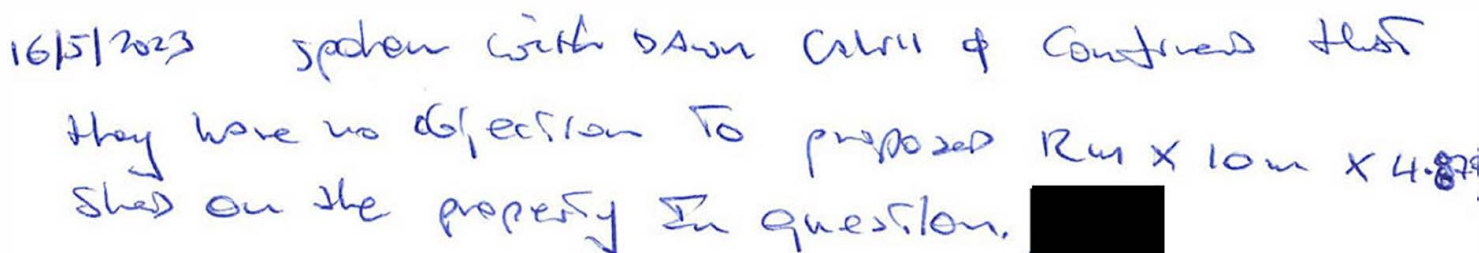 16/5/2023 spoken with Dawn & Confirmed that
they have no objection to proposed 12m x 10m x
Shed on the property In question.